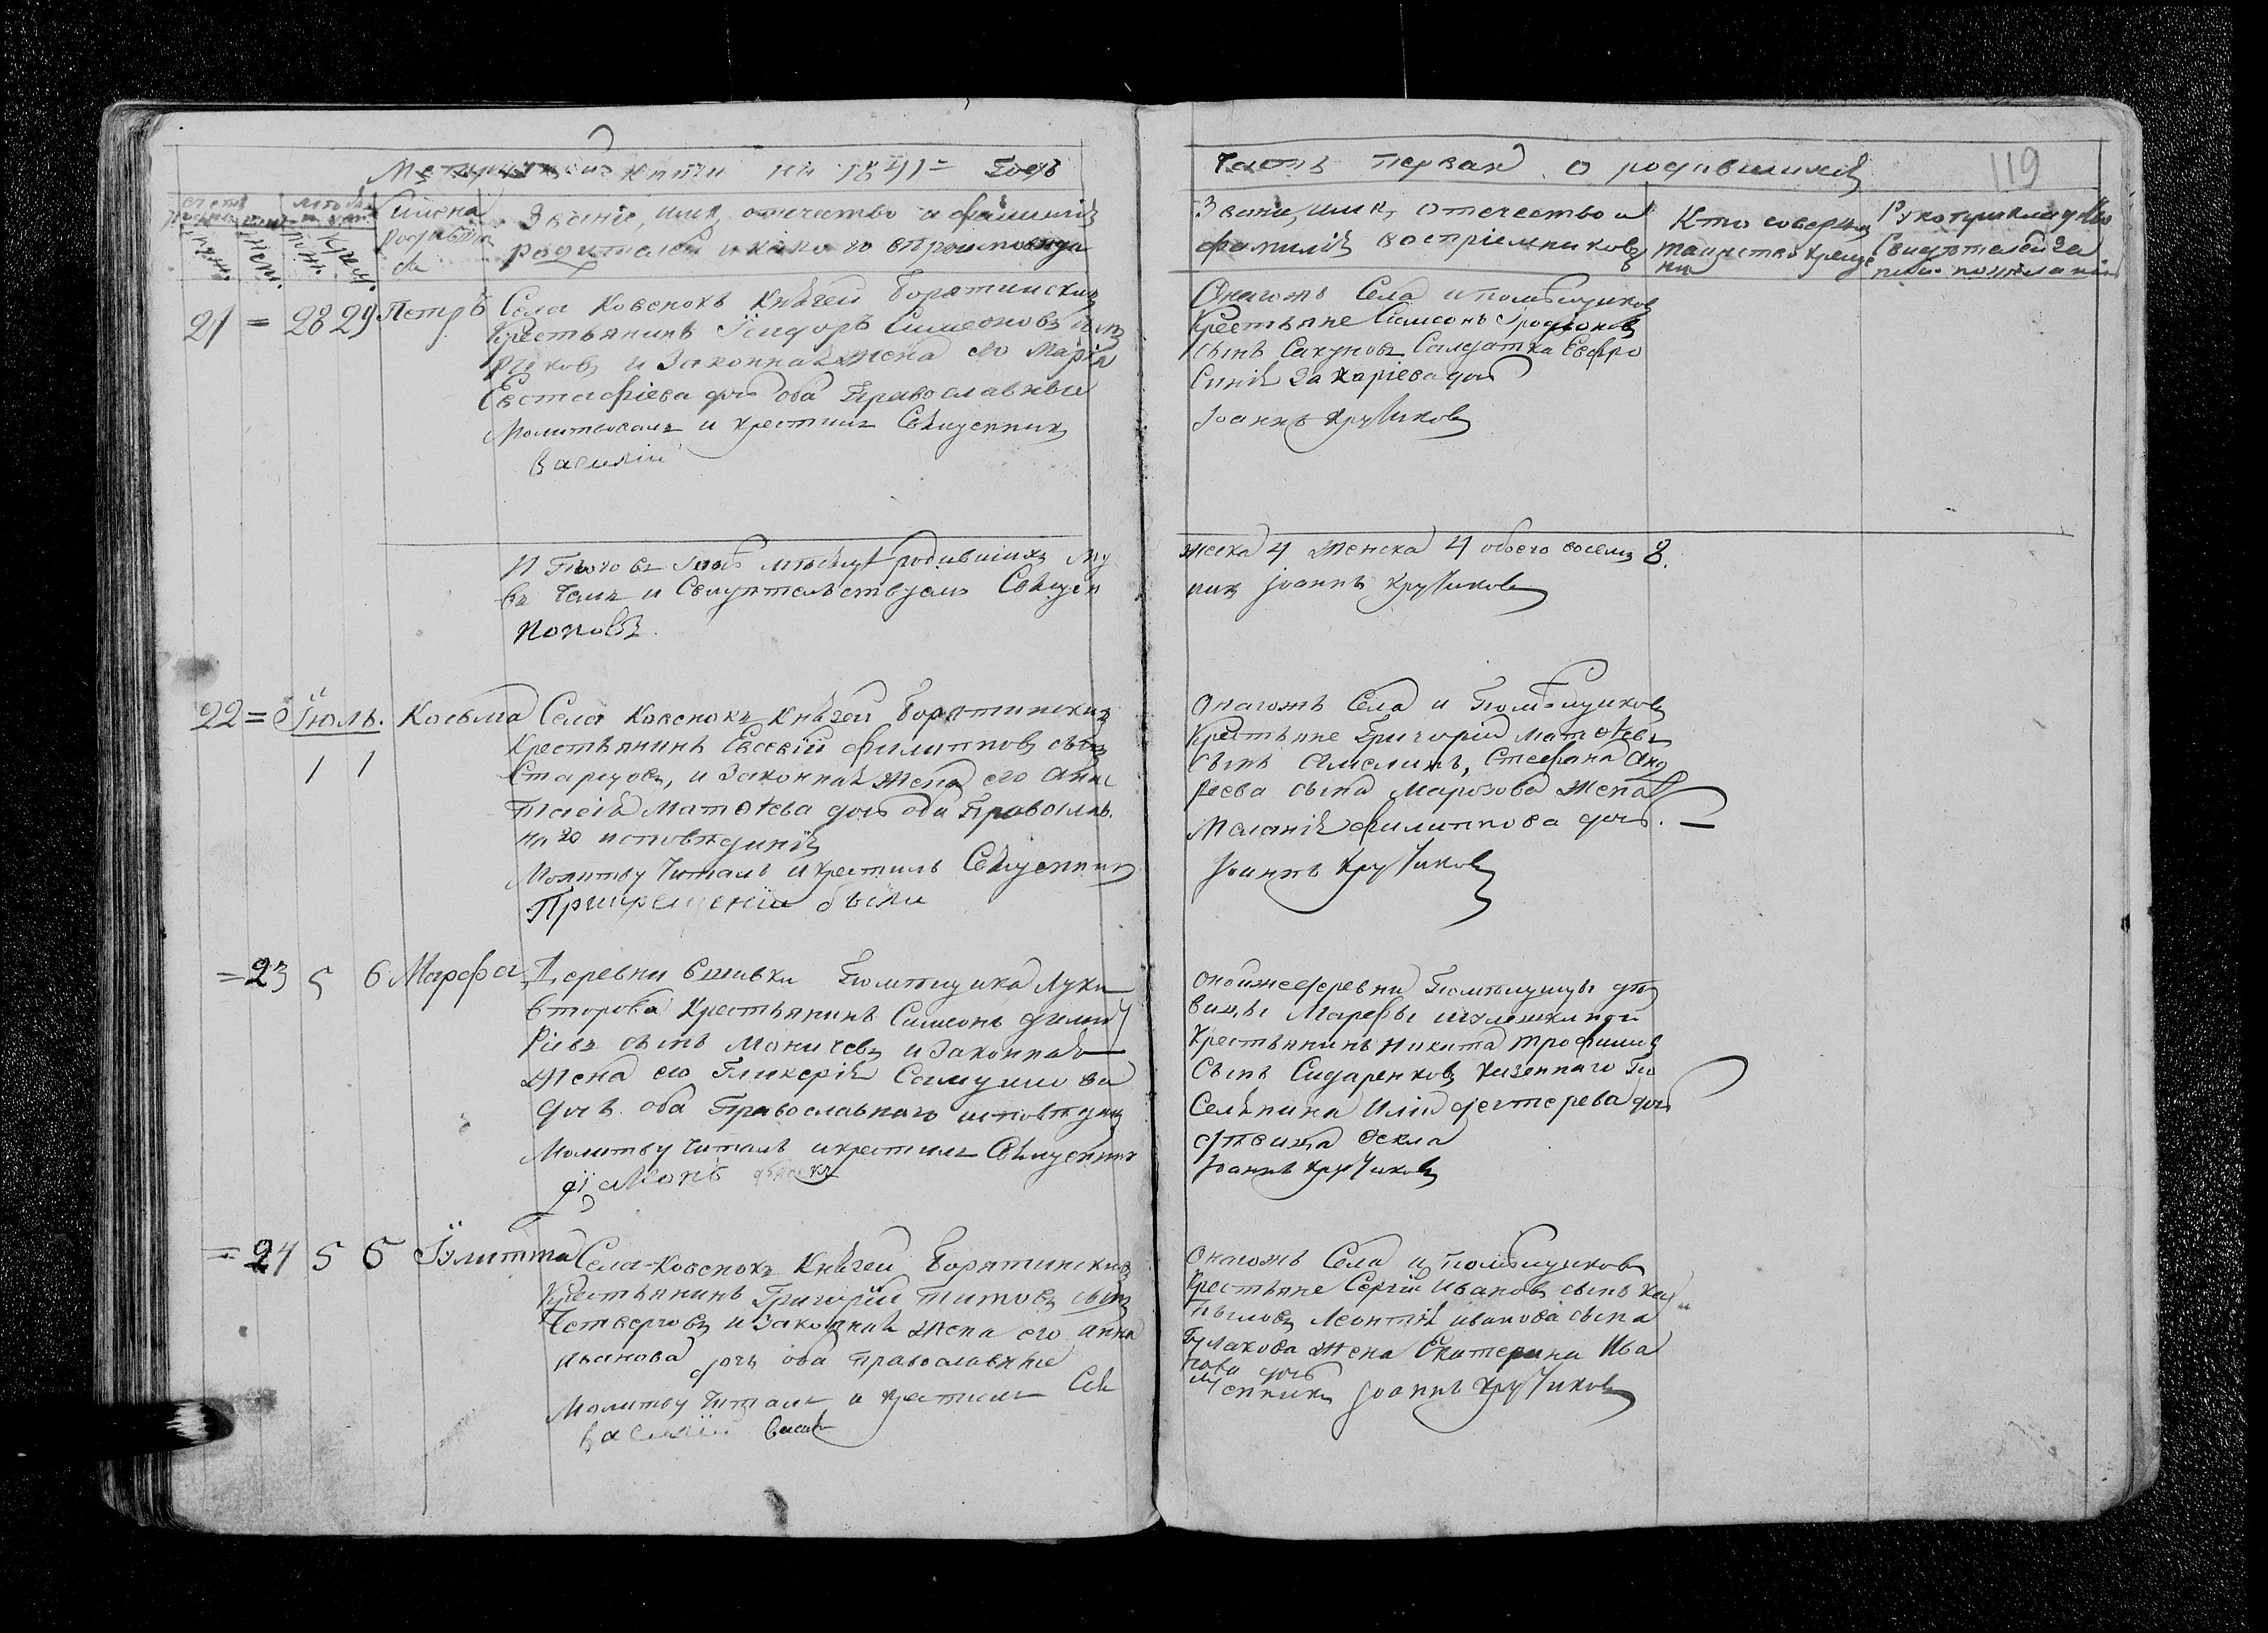 Метрической книги на 1841 = Годъ
Часть первая о родившихся
119
Имена родившихся
Званіе, имя, отечество и фамилія
родителей и како го вѣроисповѣда
Званіе, имя, отечество и
фамилія воспріемниковъ
Кто соверш
таинство креще
нія
21 = 28 29 Петръ
Села Ковенокъ Князей Борятинскихъ
Крестьянинъ Ісидоръ Симеоновъ сынъ
и Законная жена его Марія
Евстафіева дочь оба Православные
Молитвовалъ и крестилъ Священникъ
Василій
Онагожъ Села и помѣщиковъ
Крестьяне Симеонъ Іродіоновъ
сынъ Сакуновъ Салдатка Евфро
синія Захаріева дочь
Іоаннъ Кручиковъ
И Того въ Іюнѣ мѣсяцѣ родившихъ му
жеска 4 женска 4 обоего восемь 8.
и Свидѣтельствуемъ Священ
никъ Іоаннъ Кручиковъ
Поповъ
22 = Іюль. Косьма
1 1
Села Ковенокъ Князей Борятинскихъ
Крестьянинъ Евсевій Филипповъ сынъ
Старцовъ, и Законная жена его Анас
тасія Матѳѣева дочь оба Православ.
наго исповѣданія
Молитву Читалъ и крестилъ Священникъ
При крещеніи были
Онагожъ Села и Помѣщиковъ
Крестьяне Григорій Матѳѣевъ
сынъ Амелинъ, Стефана Анд
реева сына Марозова жена
Меланія Филиппова дочь. —
Іоаннъ Кручиковъ
= 23 5 6 Марѳа
Деревни Помѣщика Луки
Второва Крестьянинъ Симеонъ Дими
ріевъ сынъ Моничевъ и Законная
жена его Гликерія Самуилова
дочь. оба Православнаго исповѣдан
Молитву Читалъ и крестилъ Священникъ
Онойже деревни Помѣщицы дѣ
вицы Марѳы
Крестьянинъ Никита Трофимовъ
Сынъ Сидаренковъ Казеннаго По
Селянина Иліи Дегтерева дочь
дѣвица Ѳекла
Іоаннъ Кручиковъ
= 24 5 6 Іулитта
Села Ковенокъ Князей Борятинскихъ
Крестьянинъ Григорій Титовъ сынъ
Четверговъ и Законная жена его Анна
Иванова дочь оба православные
Молитву Читалъ и крестилъ Свя
Василій
Онагожъ Села и помѣщиковъ
Крестьяне Сергій Ивановъ сынъ Ка
Леонтія Иванова сына
Булахова жена Екатерина Ива
нова дочь
щенникъ Іоаннъ Кручиковъ